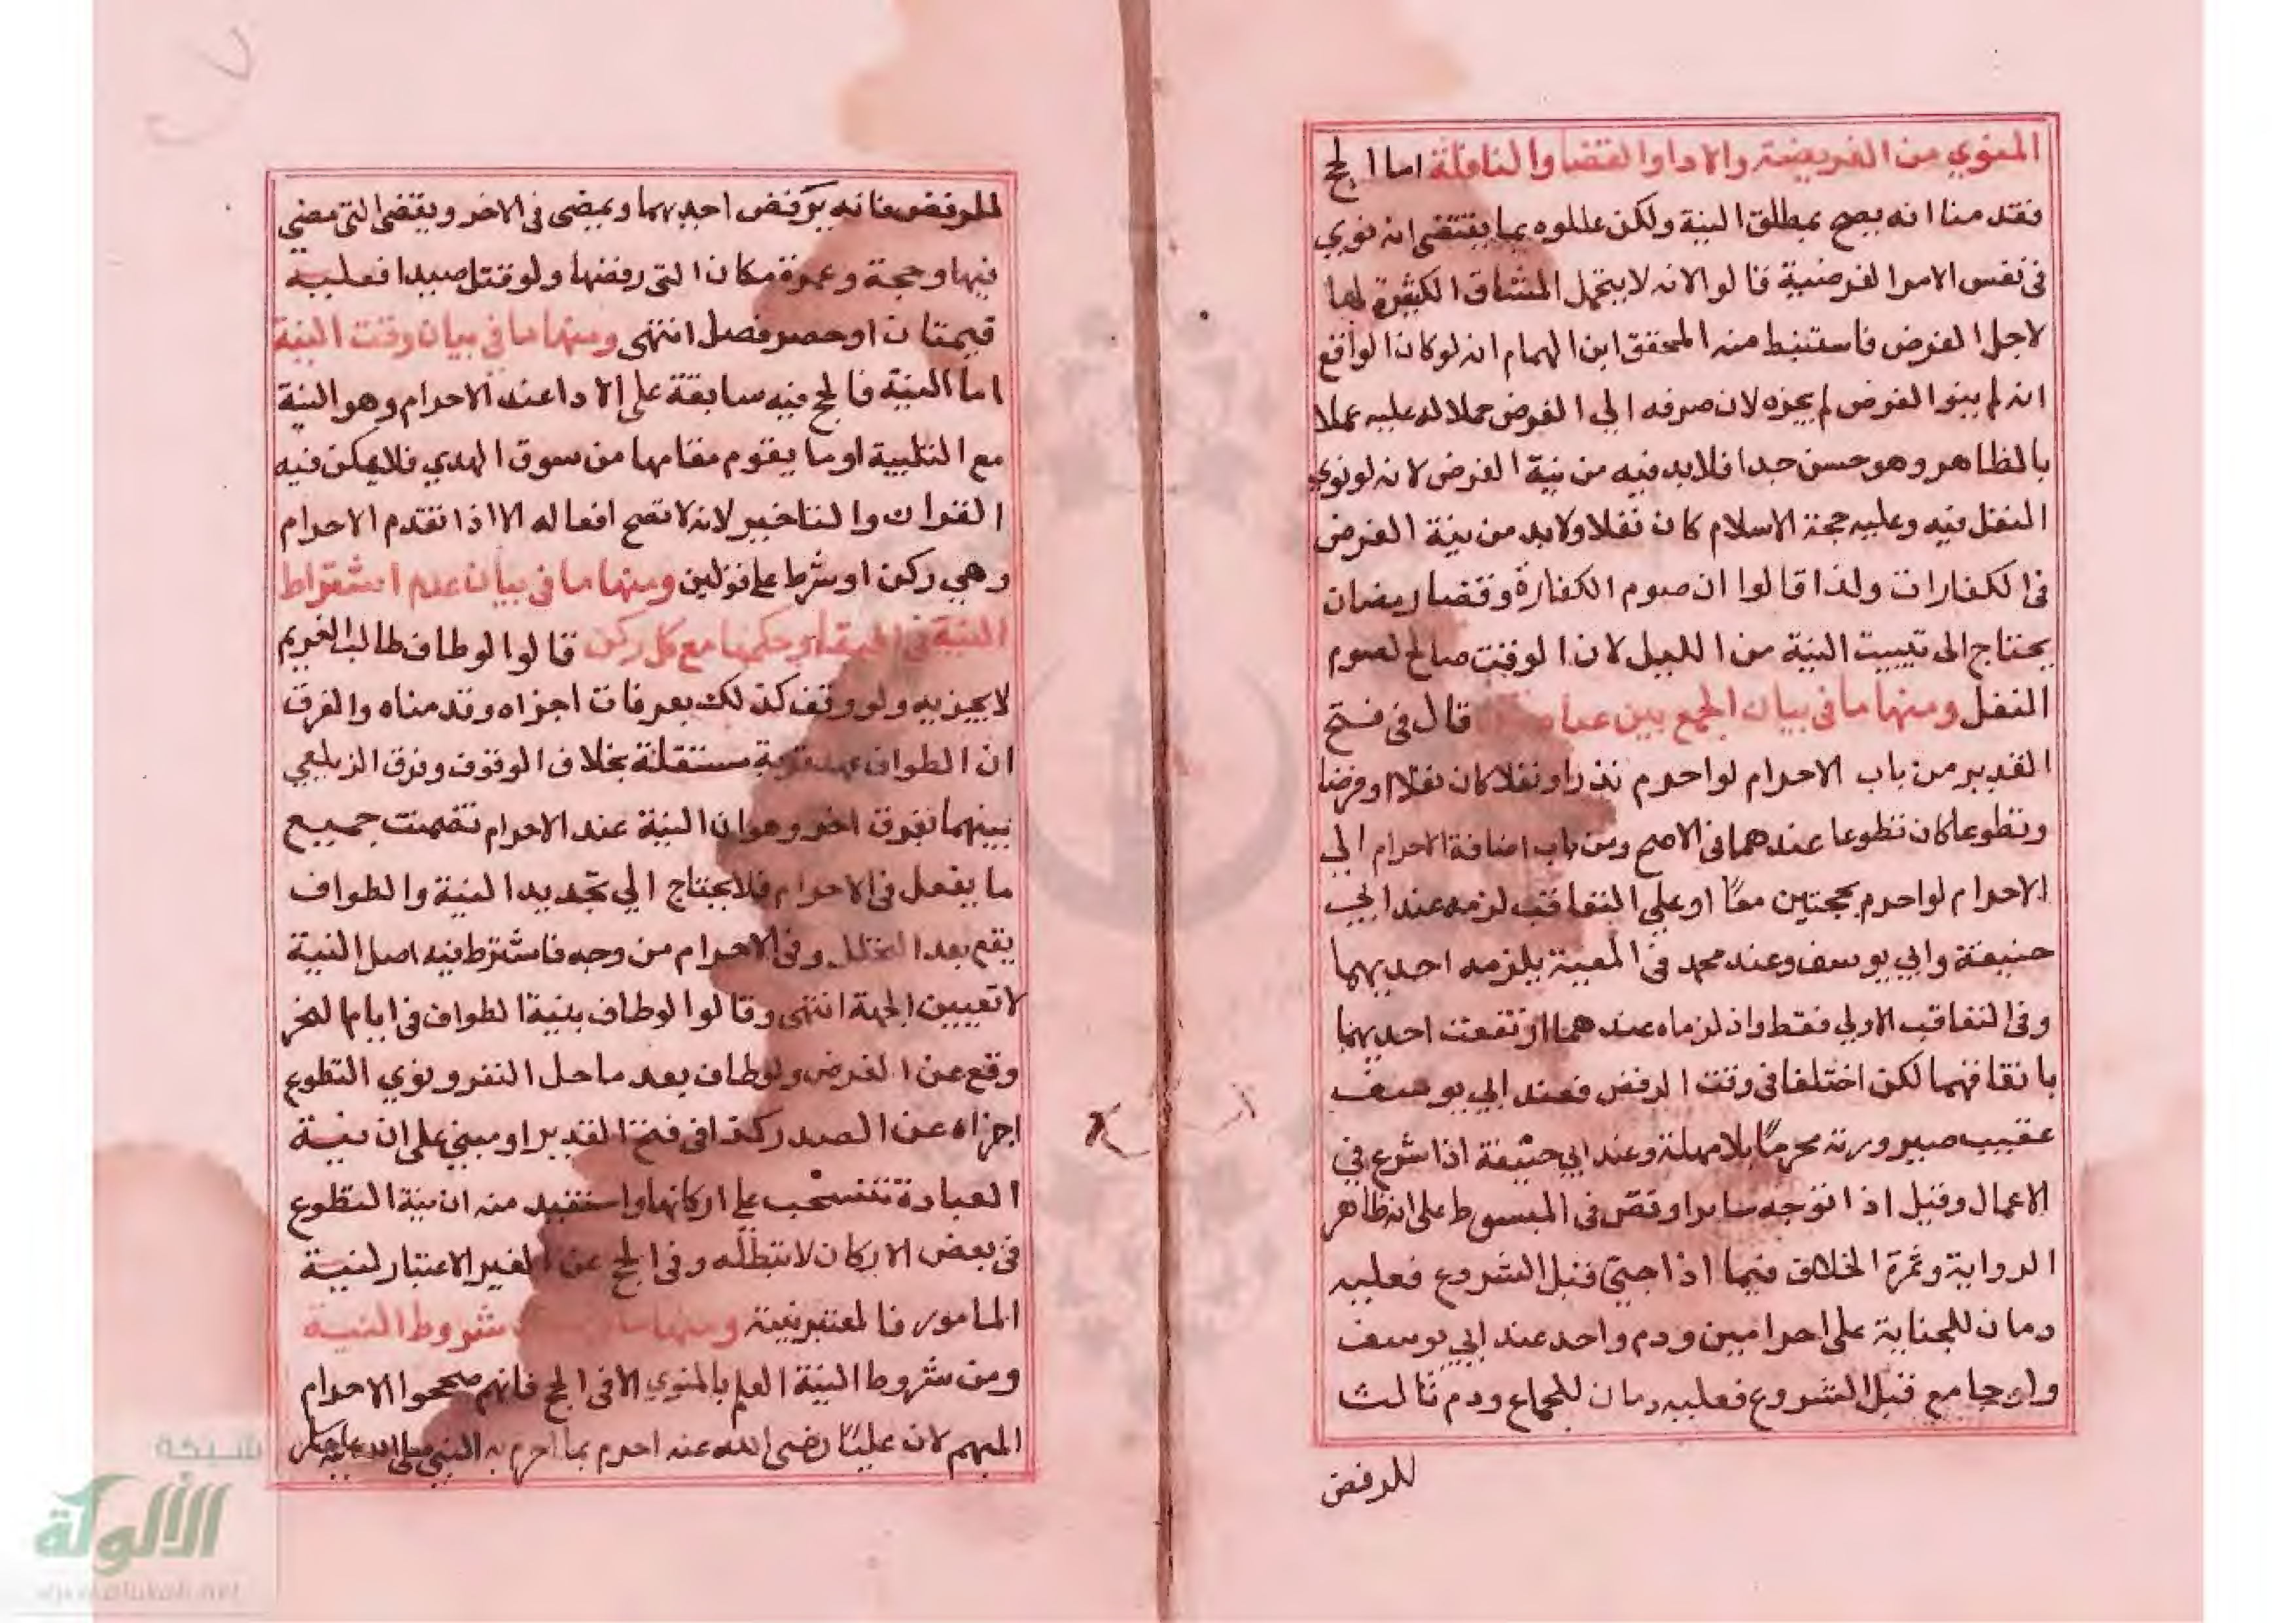 المنوي من الفريضة والادا والقضا والنافلة اما الحج
فقد منا انه يصح بمطلق النية ولكن عللوه بما يقتضي انه نوي
في نفس الامر الفرضية قالوا لانه لا يتحمل المشاق الكثيرة لها
لاجل الفرض فاستنبط منه المحقق ابن الهمام انه لو كان الواقع
انه لم ينو الفرض لم يجزه لان صرفه الي الفرض حملا له عليه عملا
بالظاهر وهو حسن جدا فلابد فيه من نية الفرض لانه لو نوي
النفل فيه وعليه حجة الاسلام كان نفلا ولابد من نية الفرض
في الكفارات ولذا قالوا ان صوم الكفارة وقضا رمضان
يحتاج الى تبييت النية من الليل لان الوقت صالح لصوم
النفل ومنها ما في بيان الجمع بين قال في فتح
القدير من باب الاحرام لو احرم نذرا ونفلا كان نفلا او فرضا
وتطوعا كان تطوعا عندهما في الاصح ومن باب اضافة الاحرام الي
الاحرام لو احرم بحجتين معًا او علي التعاقب لزمه عند ابي
حنيفة وابي يوسف وعند محمد في المعية يلزمه احديهما
وفي التعاقب الاولي فقط واذ لزماه عندهما ارتفعت احديهما
باتفاقهما لكن اختلفا في وقت الرفض فعند ابي يوسف
عقيب صيرورته محرمًا بلا مهلة وعند ابي حنيفة اذا شرع في
الاعمال وقيل اذا توجه سايرا ونص في المبسوط على انه ظاهر
الرواية وثمرة الخلاف فيما اذا جنى قبل الشروع فعليه
دمان للجناية على احرامين ودم واحد عند ابي يوسف
ولو جامع قبل الشروع فعليه دمان للجماع ودم ثالث
للرفض
للرفض فانه يرفض احديهما ويمضى في الاخر ويقضي التي مضي
فيها وحجة وعمرة مكان التي رفضها ولو قتل صيدا فعليه
قيمتان او حصر فصل انتهى ومنها ما في بيان وقت النية
اما النية فالحج فيه سابقة على الادا عند الاحرام وهو النية
مع التلبية او ما يقوم مقامها من سوق الهدي فلا يمكن فيه
القران والتاخير لانه لا تصح افعاله الا اذا تقدم الاحرام
وهي ركن او شرط على قولين ومنها ما في بيان عدم اشتراط
النية في البقاء وحكمها مع كل ركن قالوا لو طاف طالب الغريم
لا يجزيه ولو وقف كذلك بعرفات اجزاه وقد مناه والفرق
ان الطواف عهد قربة مستقلة بخلاف الوقوف وفرق الزيلعي
بينهما بفرق اخر وهو ان النية عند الاحرام تضمنت جميع
ما يفعل في الاحرام فلا يحتاج الي تجديد النية والطواف
يقع بعد التحلل وفي الاحرام من وجه فاشترط فيه اصل النية
لا تعيين الجهة انتهى وقالوا لو طاف بنية الطواف في ايام النحر
وقع عن الفرض ولو طاف بعد ما حل النفر ونوي التطوع
اجزاه عن الصدر كذا في فتح القدير او مبني على ان نية
العبادة تنسحب على اركانها واستفيد منه ان نية التطوع
في بعض الاركان لا تبطله وفي الحج عن الغير الاعتبار لنية
المامور فالمعتبر نيته ومنها ما شروط النية
ومن شروط النية العلم بالمنوي الا في الحج فانهم صححوا الاحرام
المبهم لان عليًا رضي الله عنه احرم بما احرم به النبي صلى الله عليه
شبكة
الألوكة
www.alukah.net